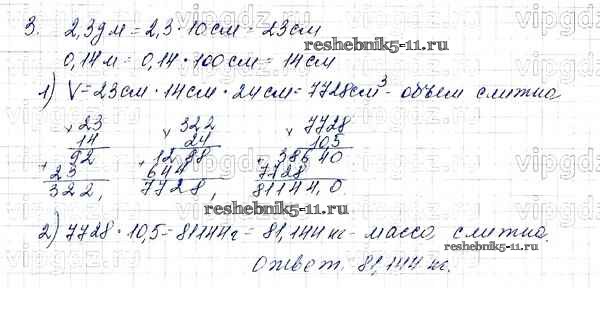 3. 2,3дм = 2,3 · 10см = 23см
0,14м = 0,14 · 100см = 14см
reshebnik5-11.ru
1) V = 23см · 14см · 24см = 7728см³ - объем слитка
× 23 × 322 × 7728
14 24 10,5
92 1288 38640
+ 23 + 644 + 7728
322, 7728, 81144,0
reshebnik5-11.ru
2) 7728 · 10,5 = 81144г = 81,144 кг - масса слитка.
reshebnik5-11.ru
Ответ: 81,144 кг.
vipgdz.ru